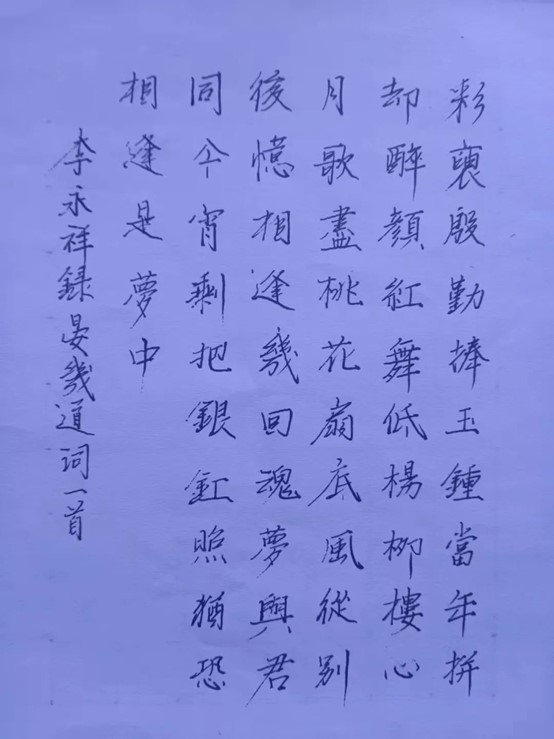 彩褏殷勤捧玉鍾當年拚
却醉顏紅舞低楊柳樓心
月歌盡桃花扇底風從别
後憶相逢幾回魂夢與君
同今宵剩把銀釭照猶恐
相逢是夢中
李永祥録晏幾道词一首